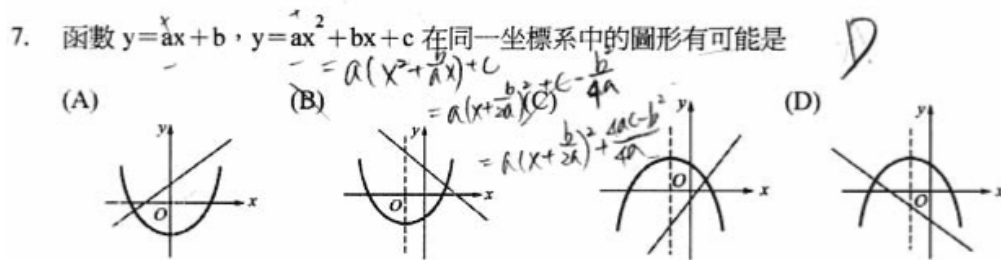 7. 函數 y=ax+b，y=ax²+bx+c 在同一坐標系中的圖形有可能是 D
= a(x²+b/a x)+c
(A) (B) (C) (D)
= a(x+b/2a)²+c-b²/4a
= a(x+b/2a)²+4ac-b²/4a
y y y y
O x O x O x O x